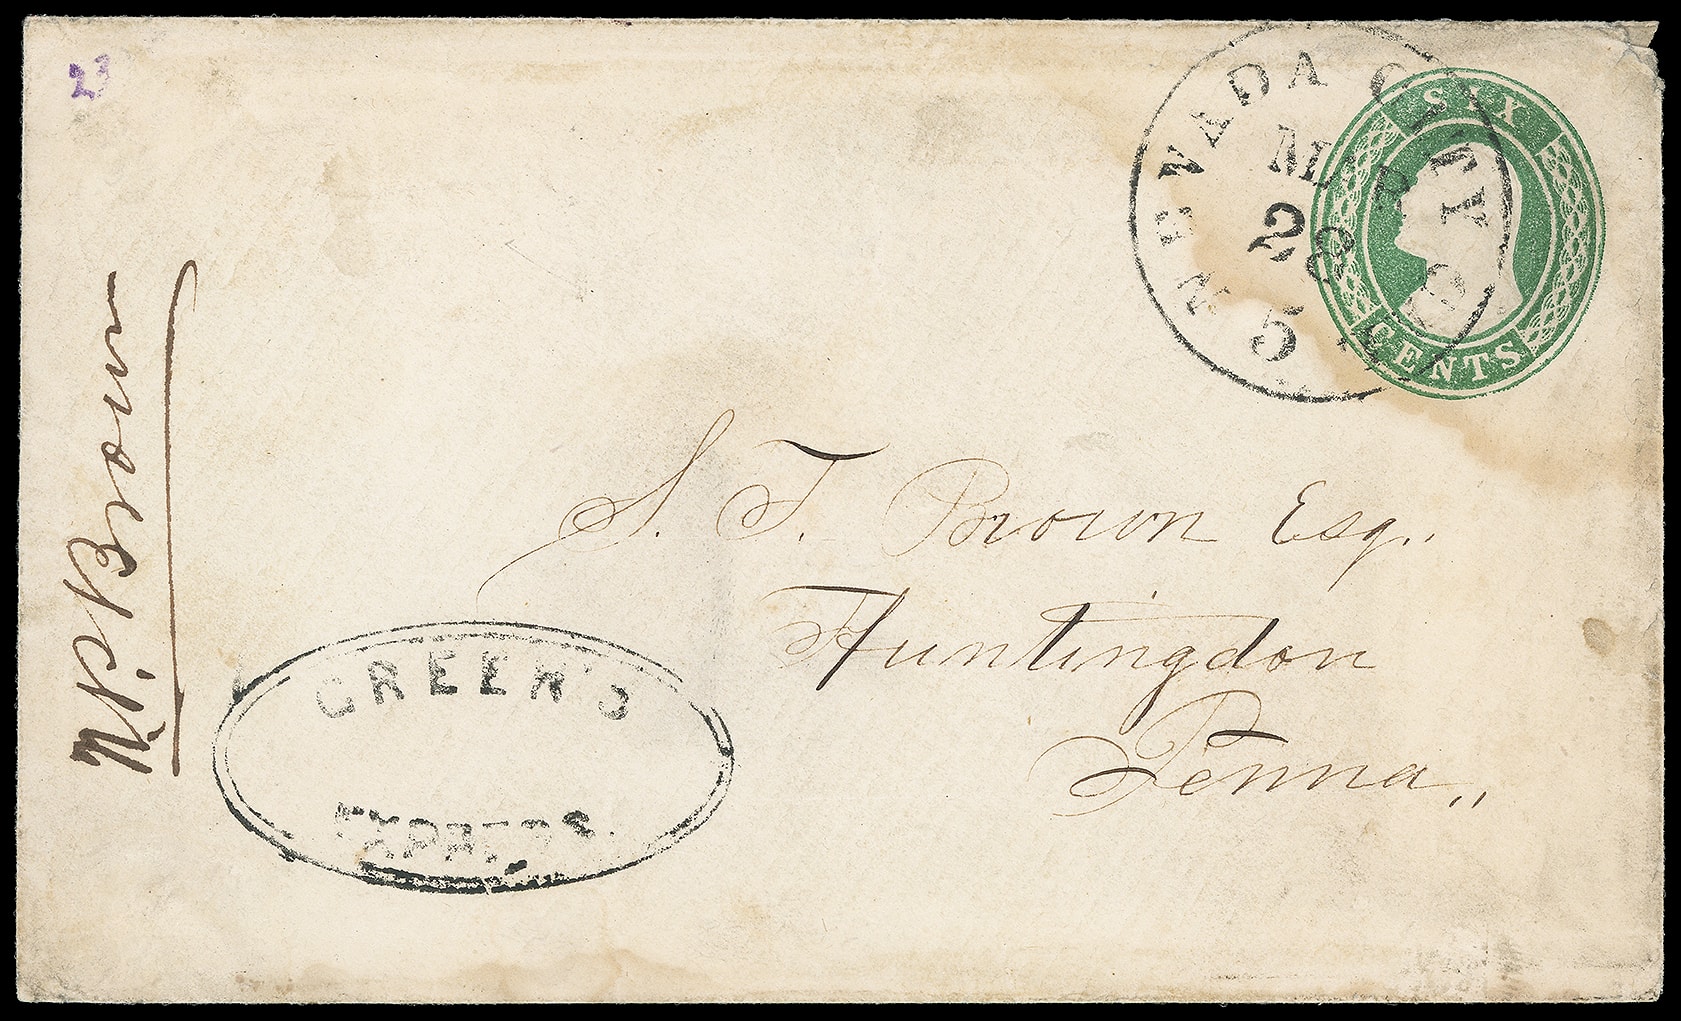 23
NEVADA CITY
28
5
SIX
CENTS
N. P. Brown
S. T. Brown Esq.,
Huntingdon
Penna,,
GREEN'S
EXPRESS.